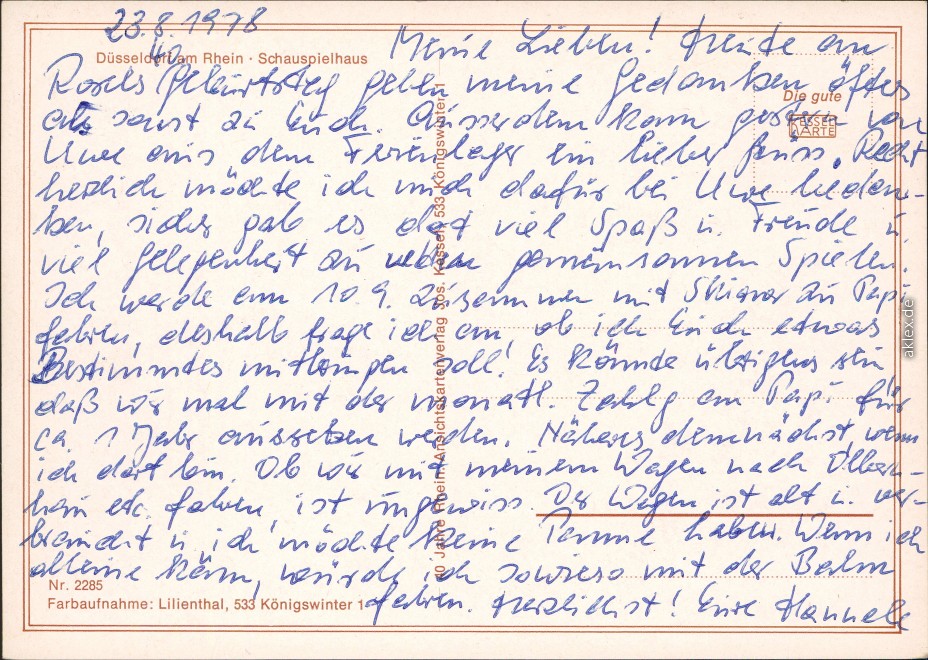 23.8.1978
Düsseldorf am Rhein · Schauspielhaus
Meine Lieben! Heute an
Rosels 40. Geburtstag gehen meine Gedanken öfters
als sonst zu Euch. Ausserdem kam gestern von
Uwe aus dem Ferienlager ein lieber Gruss. Recht
herzlich möchte ich mich dafür bei Uwe bedan-
ken, sicher gab es dort viel Spaß u. Freude u.
viel Gelegenheit zu gemeinsamen Spielen.
Ich werde am 10.9. zusammen mit zu Papi
fahren, deshalb frage ich an, ob ich Euch etwas
Bestimmtes mitbringen soll! Es könnte übrigens sein
daß wir mal mit der monatl. Zahlg an Papi für
ca. 1 Jahr aussetzen werden. Näheres demnächst, wenn
ich dort bin. Ob wir mit meinem Wagen nach Olbern-
hau etc. fahren, ist ungewiss. Der Wagen ist alt u. ver-
braucht u. ich möchte keine Panne haben. Wenn ich
alleine käm, würde ich sowieso mit der Bahn
fahren. Herzlichst! Eure Hannele
Die gute
KESSEL
KARTE
40 Jahre Rhein. Ansichtskartenverlag Jos. Kessel, 533 Königswinter 1
Nr. 2285
Farbaufnahme: Lilienthal, 533 Königswinter 1
aklex.de